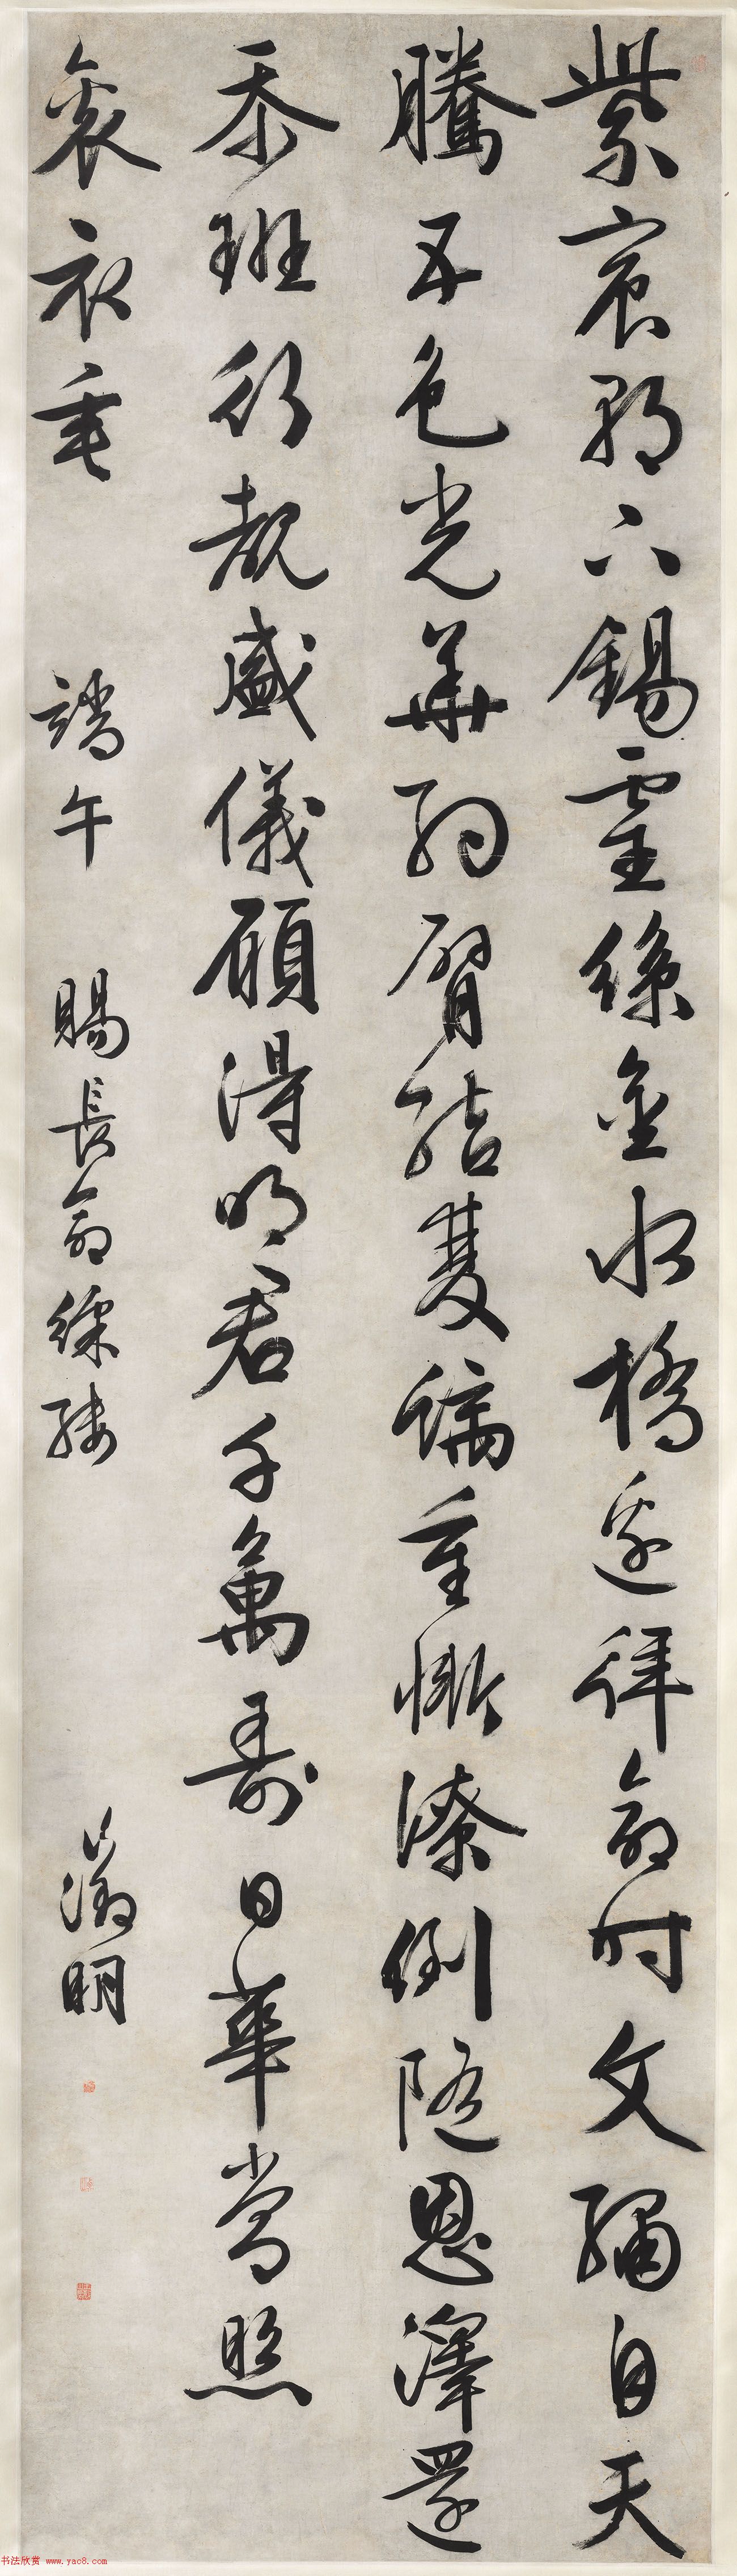 紫宸朝下錫靈絲金水橋邊拜命時文繡自天
騰五色光華約臂結雙螭重慚潦倒隨恩澤還
忝班行覩盛儀願得明君千萬壽日華常照
袞衣垂　端午　賜長命綵縷　徵明
书法欣赏 www.yac8.com